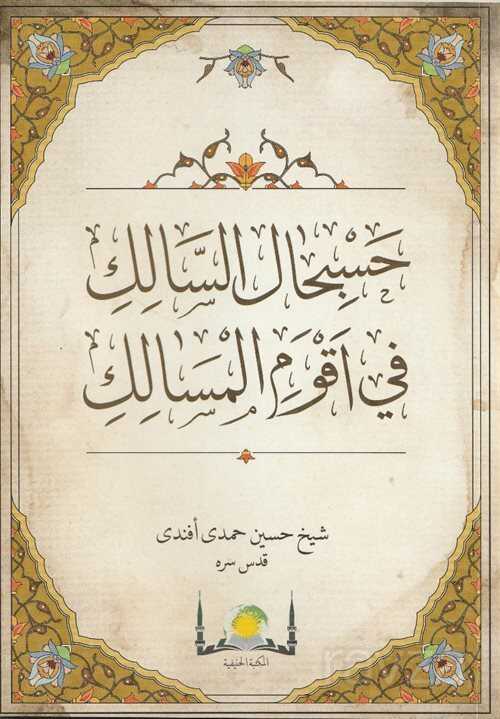 حَسِبِحَال السَّالِكِ
فِي اَقْوَمِ الْمَسَالِكِ
شيخ حسين حمدى أفندى
قدس سره
المكتبة الحنيفية